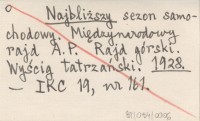 Najbliższy sezon samo-
chodowy. Międzynarodowy
rajd A.P. Rajd górski.
Wyścig tatrzański. 1928.
— IKC 19, nr 161.